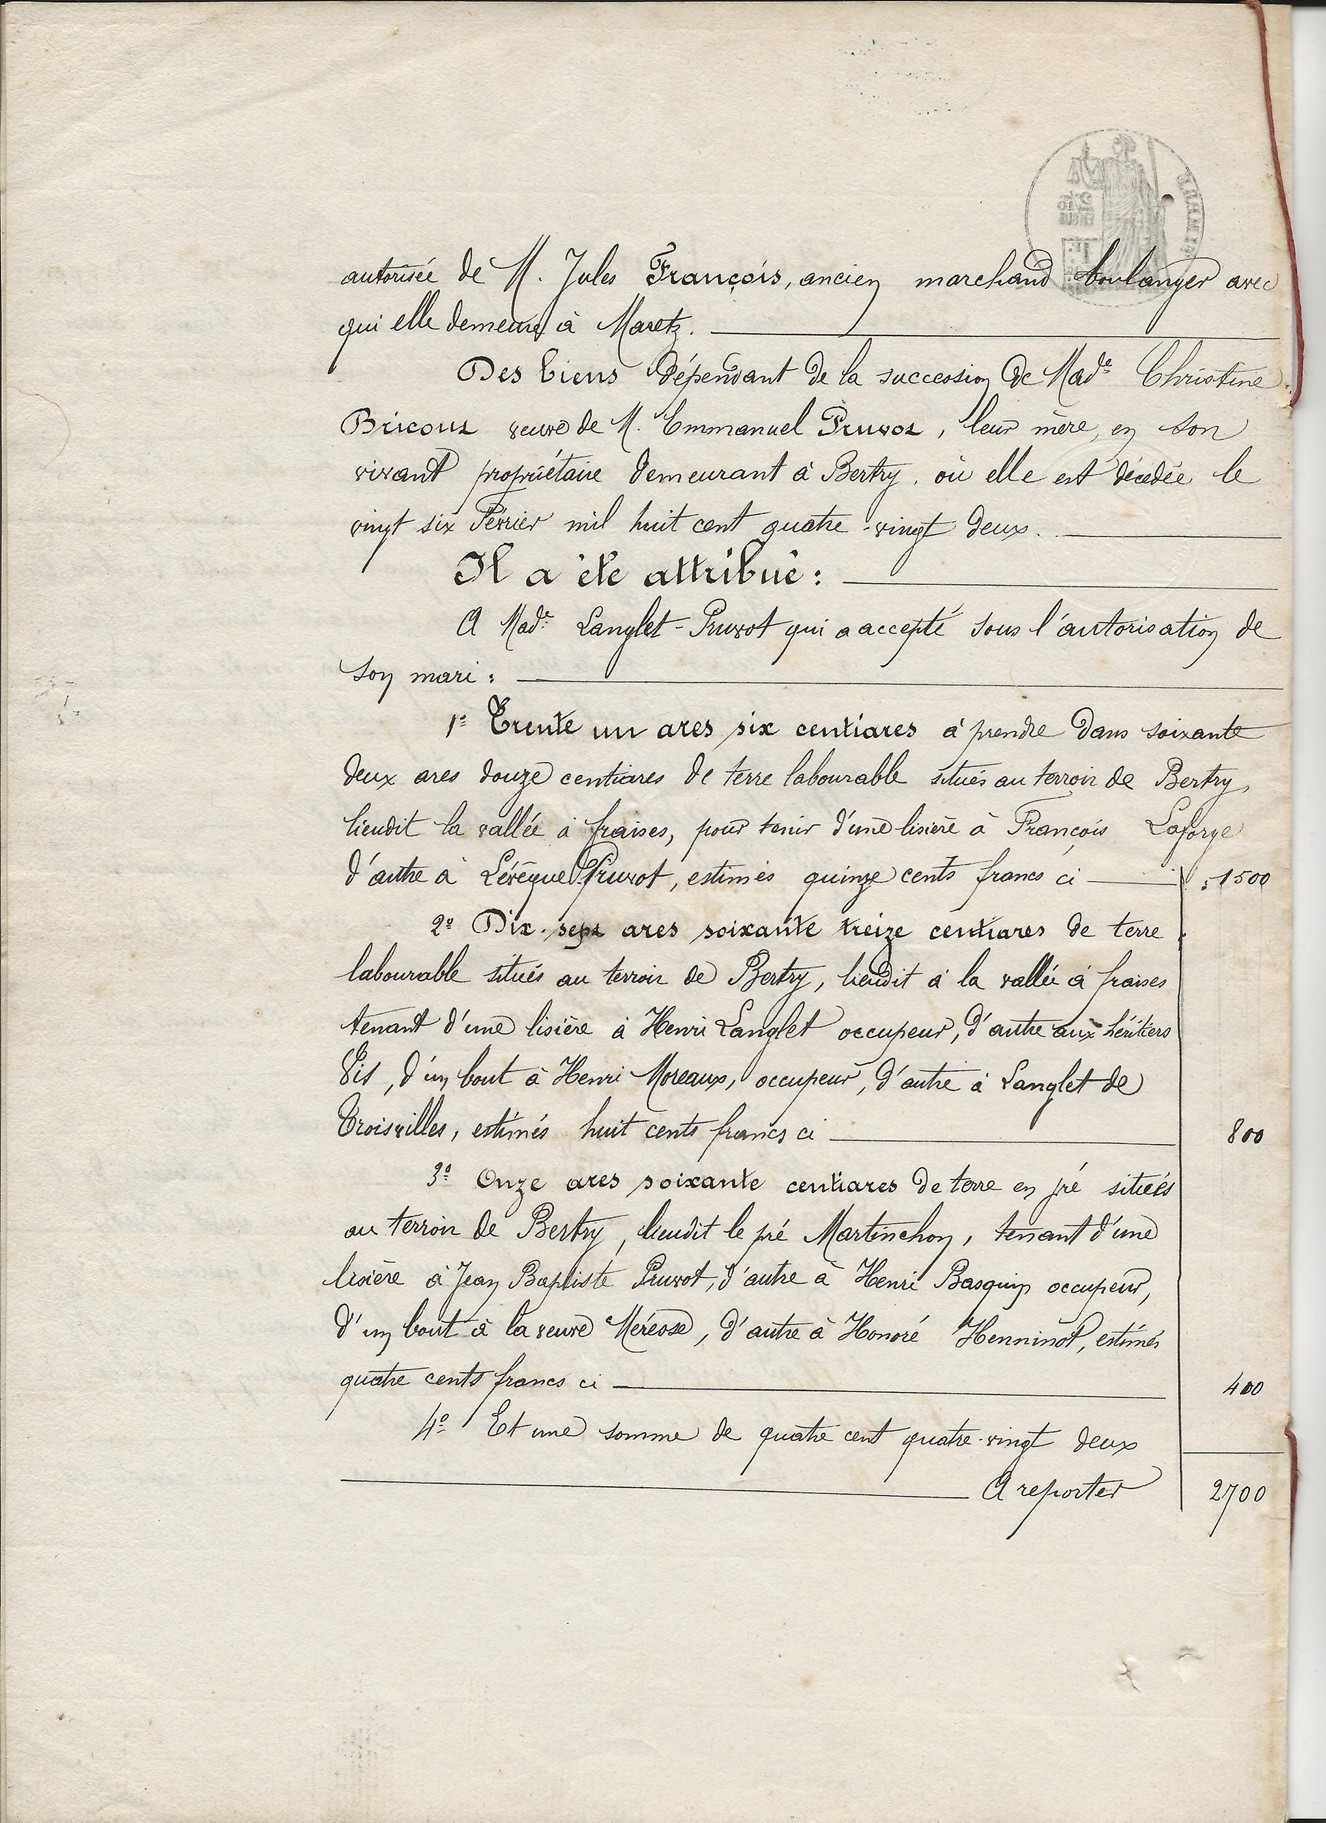 autorisée de M. Jules François, ancien marchand boulanger avec
qui elle demeure à Maretz.
Des biens dépendant de la succession de Made Christine
Bricout veuve de M. Emmanuel Pruvot, leur mère, en son
vivant propriétaire demeurant à Bertry, où elle est décédée le
vingt six Février mil huit cent quatre-vingt deux.
Il a été attribué :
A Made Langlet-Pruvot qui a accepté sous l'autorisation de
son mari :
1º Trente un ares six centiares à prendre dans soixante
deux ares douze centiares de terre labourable situés au terroir de Bertry,
lieudit la vallée à fraises, pour tenir d'une lisière à François Laforge
d'autre à Lévêque Pruvot, estimés quinze cents francs ci 1500
2º Dix-sept ares soixante treize centiares de terre
labourable situés au terroir de Bertry, lieudit à la vallée à fraises
tenant d'une lisière à Henri Langlet occupeur, d'autre aux héritiers
d'un bout à Henri Moreaux, occupeur, d'autre à Langlet de
Troisvilles, estimés huit cents francs ci 800
3º Onze ares soixante centiares de terre en pré situés
au terroir de Bertry, lieudit le pré Martinchon, tenant d'une
lisière à Jean Baptiste Pruvot, d'autre à Henri Basquin occupeur,
d'un bout à la veuve d'autre à Honoré Henninot, estimés
quatre cents francs ci 400
4º Et une somme de quatre cent quatre-vingt deux
A reporter 2700